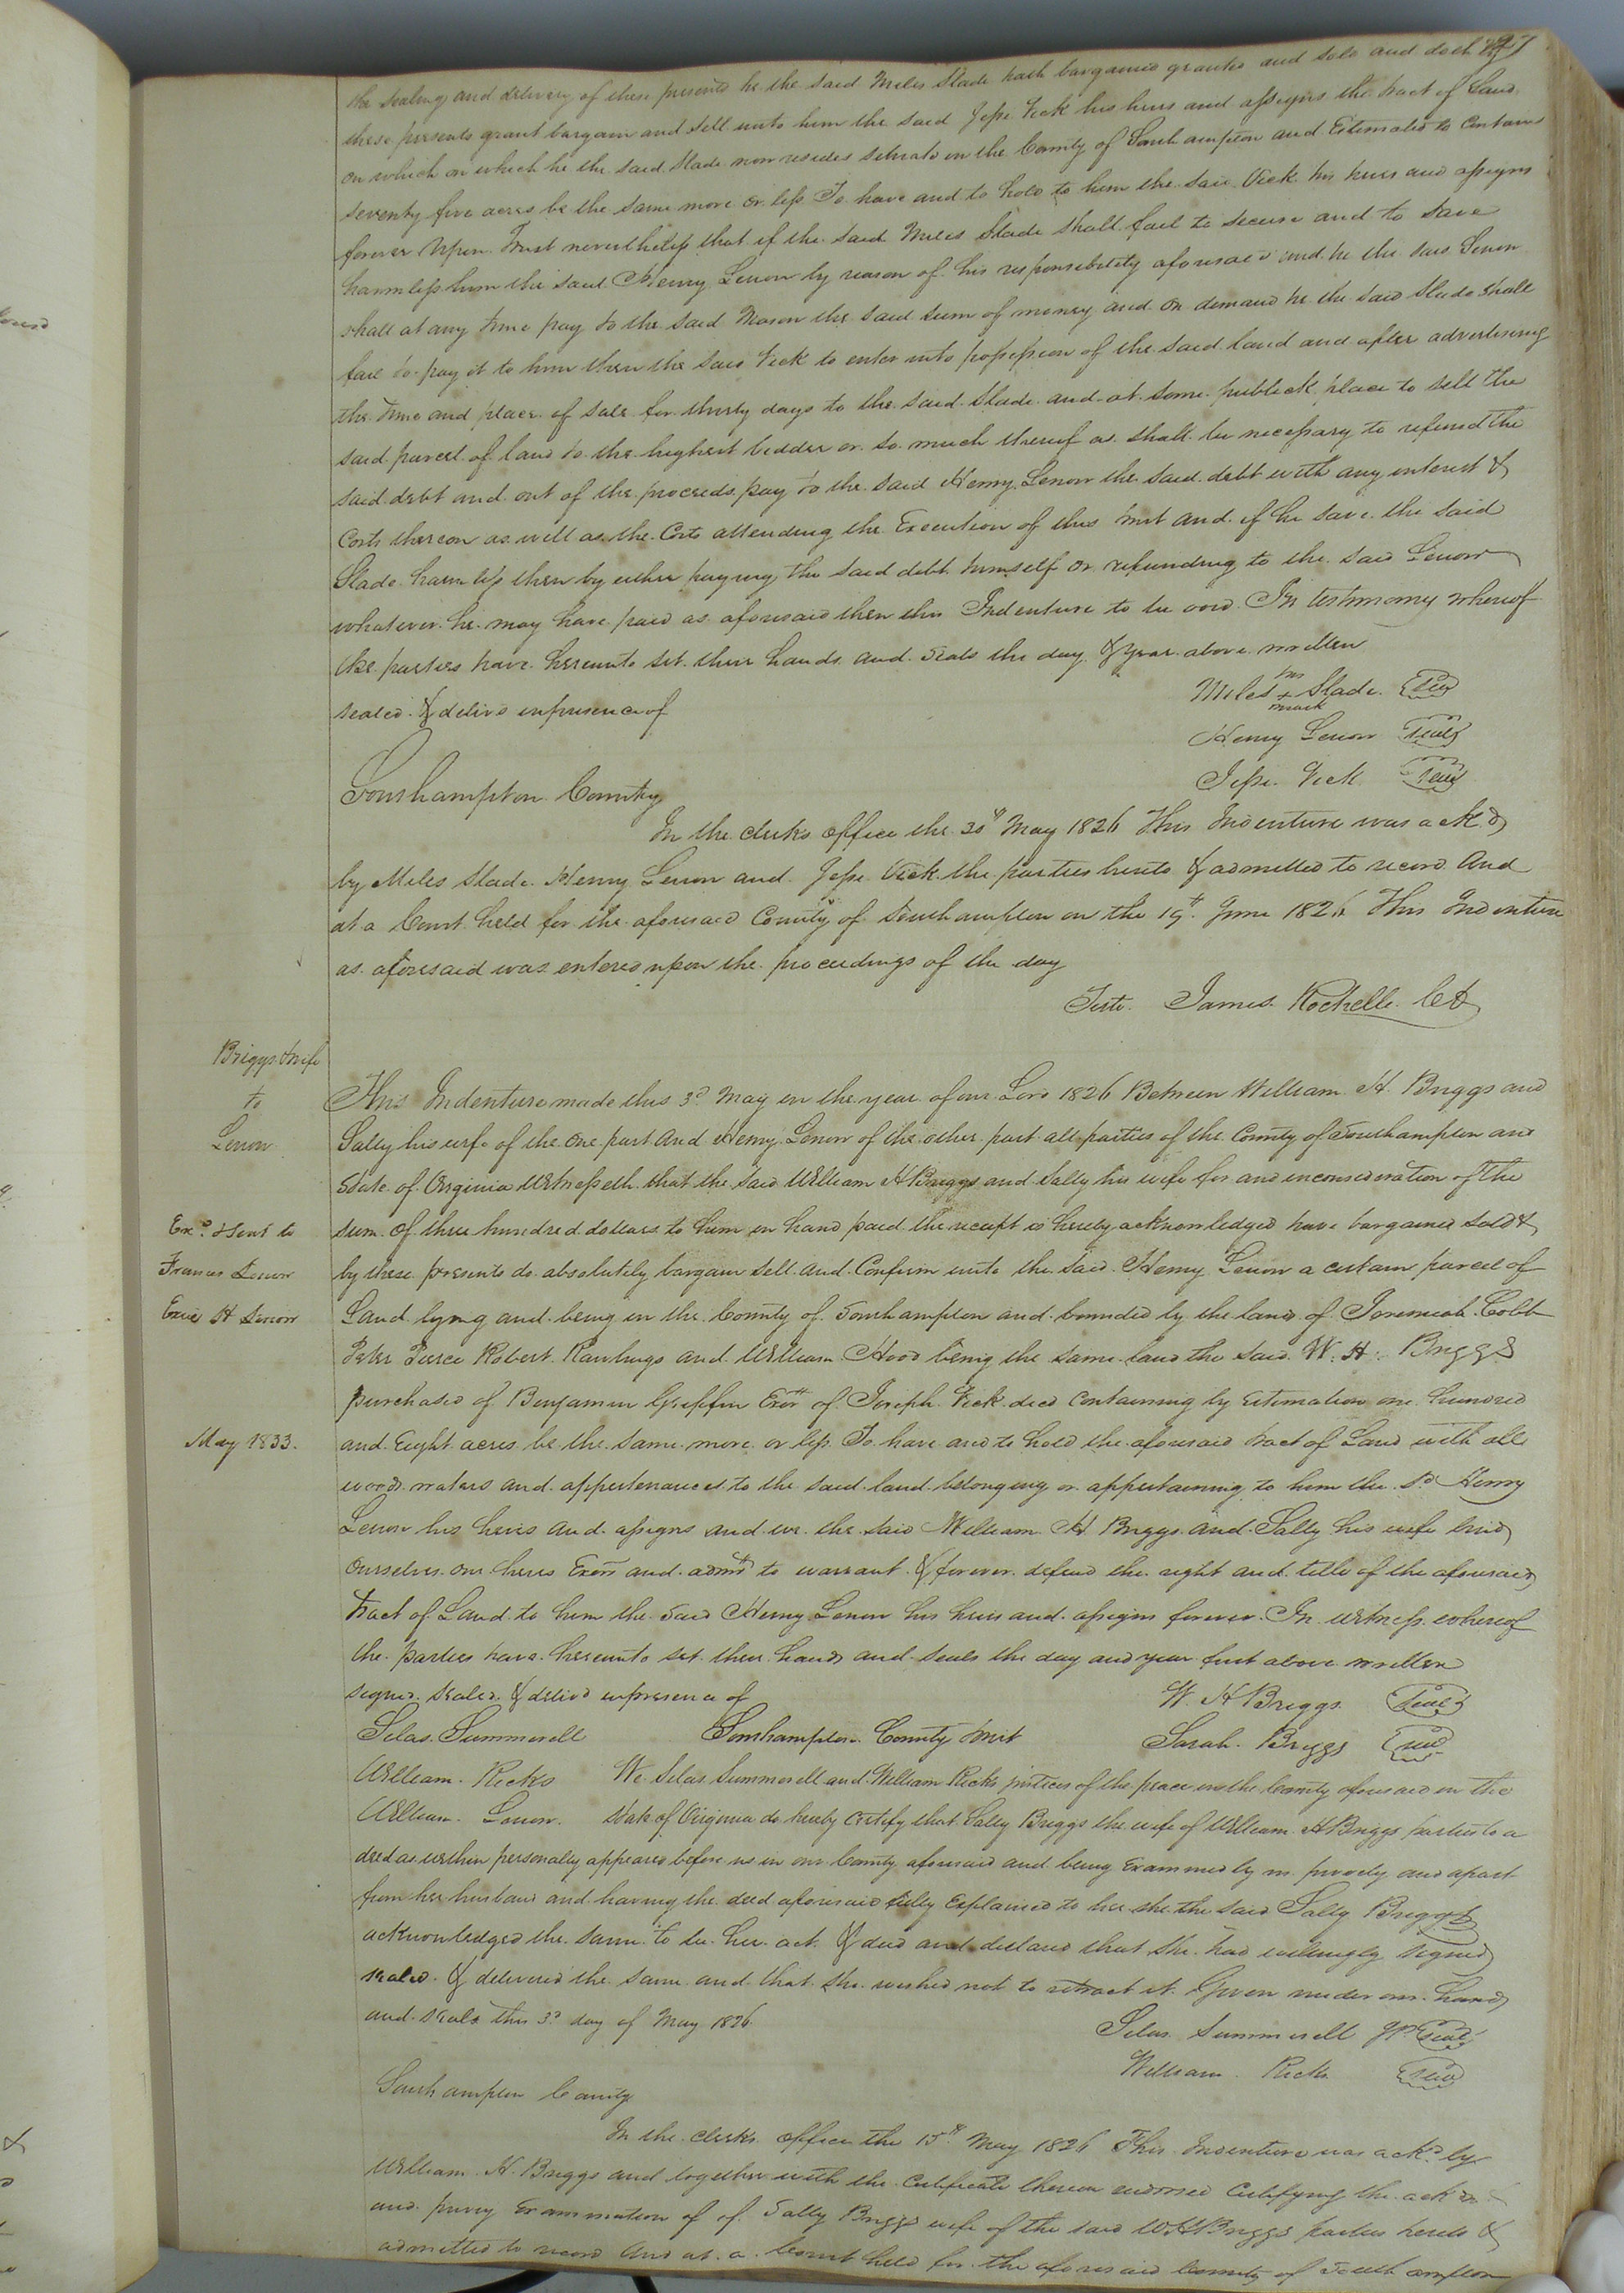 the sealing and delivery of these presents he the said Miles Slade hath bargained granted and sold and doth by
these presents grant bargain and sell unto him the said Jesse Vick his heirs and assigns the tract of Land
on which on which he the said Slade now resides situate in the County of Southampton and Estimated to Contain
seventy five acres be the same more or less To have and to hold to him the said Vick his heirs and assigns
forever Upon Trust nevertheless that if the said Miles Slade shall fail to secure and to save
harmless him the said Henry Lenow by reason of his responsibility aforesaid and he the said Lenow
shall at any time pay to the said Mason the said sum of money and on demand he the said Slade shall
fail to pay it to him then the said Vick to enter into possession of the said land and after advertising
the time and place of sale for thirty days to the said Slade and at some publick place to sell the
said parcel of land to the highest bidder or so much thereof as shall be necessary to refund the
said debt and out of the proceeds pay to the said Henry Lenow the said debt with any interest &
Costs thereon as well as the Costs attending the Execution of this trust and if he save the said
Slade harmless then by either paying the said debt himself or refunding to the said Lenow
whatever he may have paid as aforesaid then this Indenture to be void In testimony whereof
the parties have hereunto set their hands and seals the day & year above written
sealed & delivd in presence of
Miles his + mark Slade Seal
Henry Lenow Seal
Jesse Vick Seal
Southampton County
In the clerks office the 30th May 1826 This Indenture was ackd
by Miles Slade Henry Lenow and Jesse Vick the parties hereto & admitted to record And
at a Court held for the aforesaid County of Southampton on the 19th June 1826 This Indenture
as aforesaid was entered upon the proceedings of the day
Teste James Rochelle CC
Briggs & wife
to
Lenow
This Indenture made this 3d May in the year of our Lord 1826 Between William H. Briggs and
Sally his wife of the one part And Henry Lenow of the other part all parties of the County of Southampton and
State of Virginia Witnesseth that the said William H Briggs and Sally his wife for and in consideration of the
sum of three hundred dollars to him in hand paid the receipt is hereby acknowledged have bargained sold &
by these presents do absolutely bargain sell and Confirm unto the said Henry Lenow a certain parcel of
Land lying and being in the County of Southampton and bounded by the lands of Jeremiah Cobb
Peter Pierce Robert Rawlings and William Hood being the same land the said W. H. Briggs
purchased of Benjamin Griffin Exor of Joseph Vick decd Containing by Estimation one hundred
and Eight acres be the same more or less To have and to hold the aforesaid tract of Land with all
woods waters and appertenances to the said land belonging or appertaining to him the sd Henry
Lenow his heirs and assigns and we the said William H Briggs and Sally his wife bind
ourselves our heirs Exors and admrs to warrant & forever defend the right and title of the aforesaid
tract of Land to him the said Henry Lenow his heirs and assigns forever In witness whereof
the parties have hereunto set their hands and seals the day and year first above written
Exd & sent to
Frances Lenow
Exrix H Lenow
May 1833.
signed sealed & delivd in presence of
W. H Briggs Seal
Silas Summerell
Sarah Briggs Seal
William Ricks
William Lenow
Southampton County towit
We Silas Summerell and William Ricks justices of the peace in the County aforesaid in the
State of Virginia do hereby Certify that Sally Briggs the wife of William H Briggs parties to a
deed as within personally appeared before us in our County aforesaid and being Examined by us privily and apart
from her husband and having the deed aforesaid fully Explained to her she the said Sally Briggs
acknowledged the same to be her act & deed and declared that she had willingly signed
sealed & delivered the same and that she wished not to retract it Given under our hands
and seals this 3d day of May 1826
Silas Summerell JP Seal
William Ricks Seal
Southampton County
In the clerks office the 15th May 1826 This Indenture was ackd by
William H. Briggs and together with the Certificate thereon endorsed Certifying the ackd
and privy Examination of of Sally Briggs wife of the said W H Briggs parties hereto &
admitted to record And at a Court held for the aforesaid County of Southampton